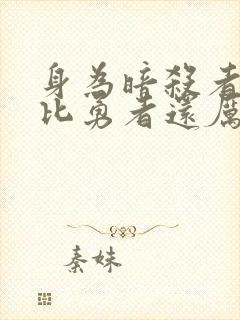 身為暗殺者
比勇者還厲
秦妹